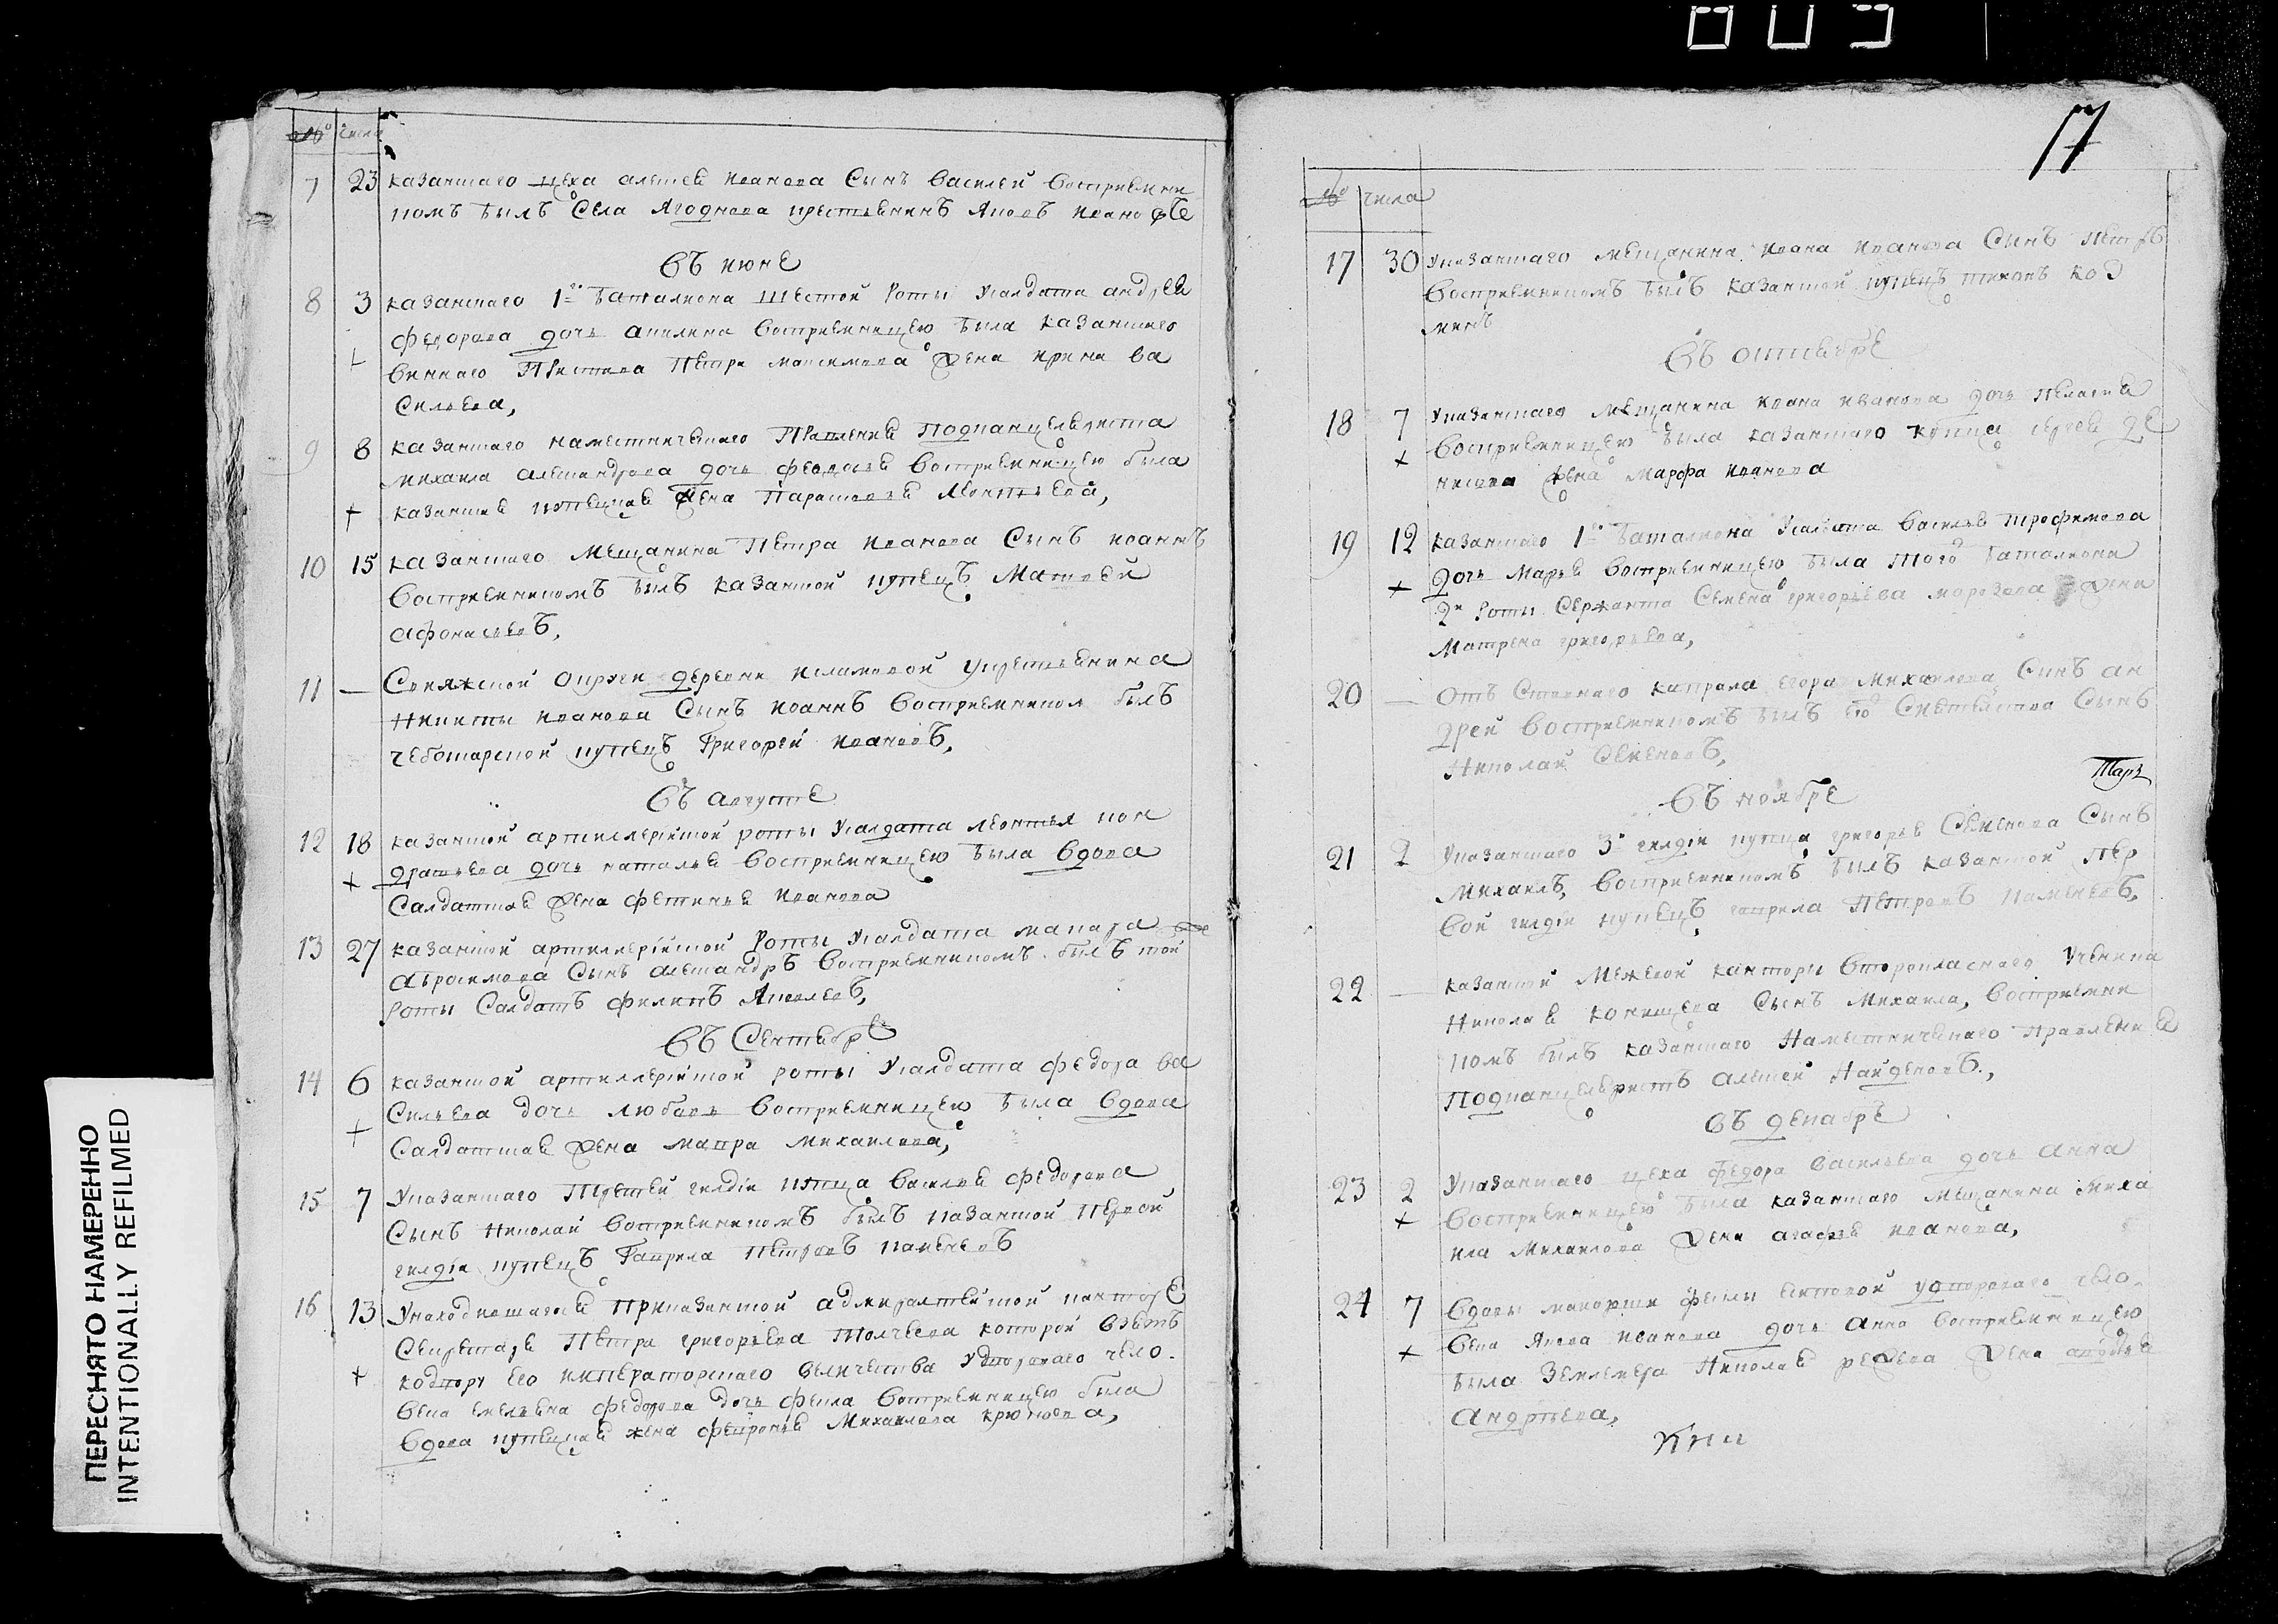 003
17
№ числа
7 23 казаншаго цеха алексея иванова Сынъ василей восприемни
комъ былъ Села Ягоднова крестьенинъ Яковъ ивано
въ июне
8 3 казанскаго 1го баталиона шестой роты Усалдата андрея
федорова дочь акилина восприемницею была казанскаго
+ виннаго Пристава Петра максимова жена ирина ва
сильева,
9 8 казанскаго наместническаго Правления подканцеляриста
михаила александрова дочь феодосья восприемницею была
+ казанская купецкая жена Парасковья Леонтьева,
10 15 казанскаго мещанина Петра иванова Сынъ иоаннъ
восприемникомъ былъ казанской купецъ Матвей
афонасьевъ,
11 — Свияжской округи деревни исламовой укрестьенина
Никиты иванова Сынъ иоаннъ восприемником былъ
чебоксарской купецъ Григорей ивановъ,
въ августе
12 18 казанской артиллерійской роты Усалдата леонтья кон
дратьева дочь наталья восприемницею была вдова
+ Салдатская жена фетинья иванова
13 27 казанской артиллерійской роты Усалдата макара
абросимова Сынъ александръ восприемникомъ былъ той
роты Салдатъ филипъ Яковлевъ,
въ Сентябре
14 6 казанской артиллерійской роты Усалдата федора ва
Сильева дочь любовь восприемницею была вдова
+ Салдатская жена мавра михаилова,
15 7 Указанскаго Третьей гилдіи купца василья федорова
Сынъ Николай восприемникомъ былъ казанской первой
гилдіи купецъ Гаврила Петровъ каменевъ
16 13 Унаходящагося Приказанской адмиралтейской канторе
Секретаря Петра григорьева Толчева которой взятъ
+ кодвору его императорскаго величества Удвороваго чело
века емельяна федорова дочь фекла восприемницею была
вдова купецкая жена февронья Михаилова крюкова,
№ числа
17 30 Указанскаго мещанина ивана иванова Сынъ Петръ
восприемникомъ былъ казанской купецъ тихонъ коз
минъ
въ октябре
18 7 Указанскаго мещанина ивана иванова дочь пелагея
восприемницею была казанскаго купца сергея де
+ нисова жена Марфа иванова
19 12 казанскаго 1го баталиона Усалдата василья трофимова
+ дочь Марья восприемницею была того баталиона
2й роты Сержанта Семена григорьева морозова жена
Матрена григорьева,
20 — Отъ Ставнаго капрала егора михаилова Сынъ ан
дрей восприемникомъ былъ Сынъ
Николай Семеновъ,
въ ноябре
21 2 Указанскаго 3й гилдіи купца григорья Семенова Сынъ
Михаилъ, восприемникомъ былъ казанской пер
вой гилдіи купецъ гаврила Петровъ каменевъ,
22 — казанской Межевой канторы второкласнаго Ученика
Николая конищева Сынъ Михаила, восприемни
комъ былъ казанскаго Наместническаго правления
Подканцеляристъ алексей Найденовъ,
въ декабре
23 2 Указанскаго цеха федора васильева дочь анна
+ восприемницею была казанскаго мещанина миха
ила михаилова жена агафья иванова,
24 7 вдовы маиорши феклы Удвороваго чело
+ века Якова иванова дочь анна восприемницею
была землемера Николая жена авдотья
андреева,
ПЕРЕСНЯТО НАМЕРЕННО
INTENTIONALLY REFILMED